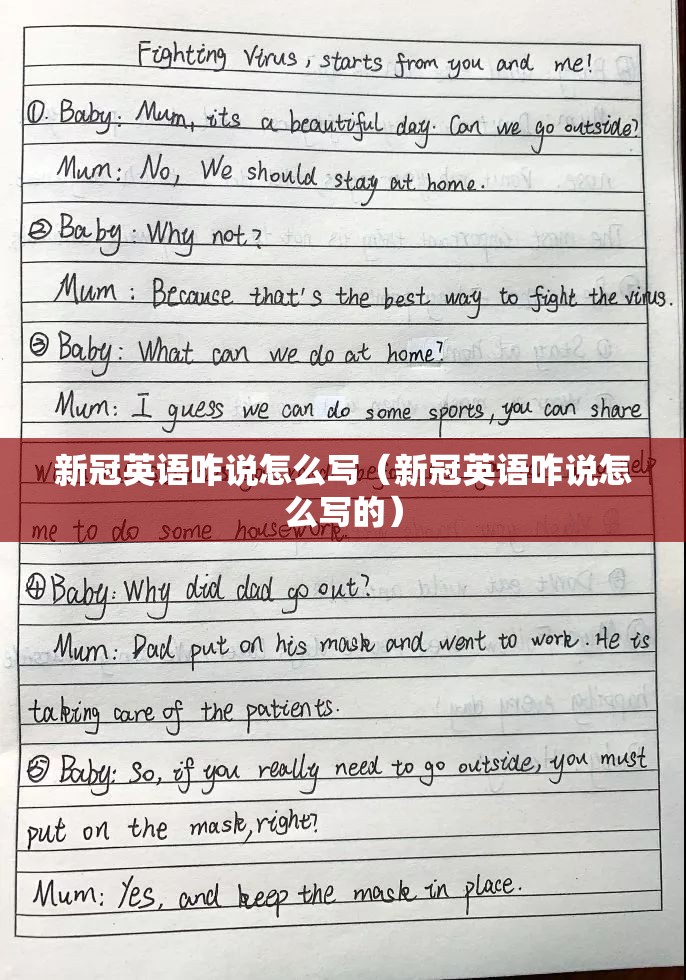 Fighting Virus, starts from you and me!
①. Baby: Mum, its a beautiful day. Can we go outside?
Mum: No, We should stay at home.
② Baby: Why not?
Mum: Because that's the best way to fight the virus.
③ Baby: What can we do at home?
Mum: I guess we can do some sports, you can share
新冠英语咋说怎么写（新冠英语咋说怎
么写的）
me to do some housework.
④ Baby: Why did dad go out?
Mum: Dad put on his mask and went to work. He is
taking care of the patients.
⑤ Baby: So, if you really need to go outside, you must
put on the mask, right?
Mum: Yes, and keep the mask in place.